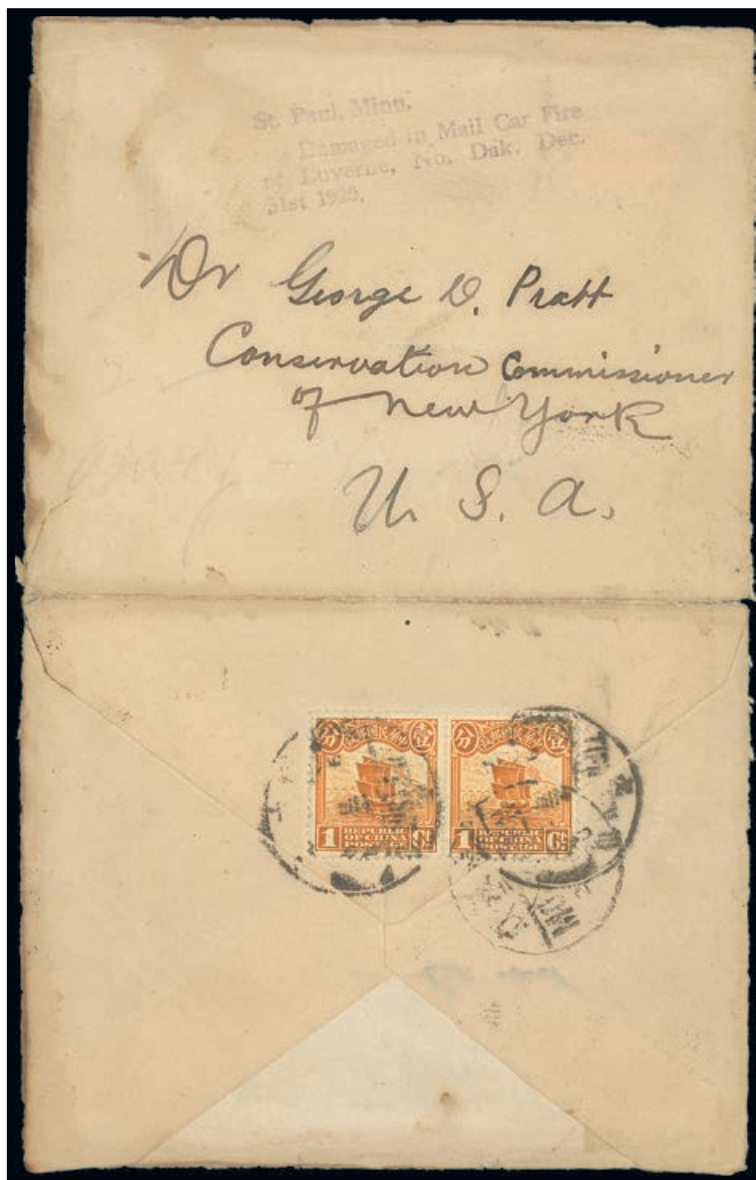 St. Paul, Minn.
Damaged in Mail Car Fire
at Luverne, No. Dak. Dec.
31st 1920.
Dr George D. Pratt
Conservation Commissioner
of New York
U. S. A.
分 壹 分 壹
1 REPUBLIC OF CHINA POSTAGE Ct. 1 REPUBLIC OF CHINA POSTAGE Ct.